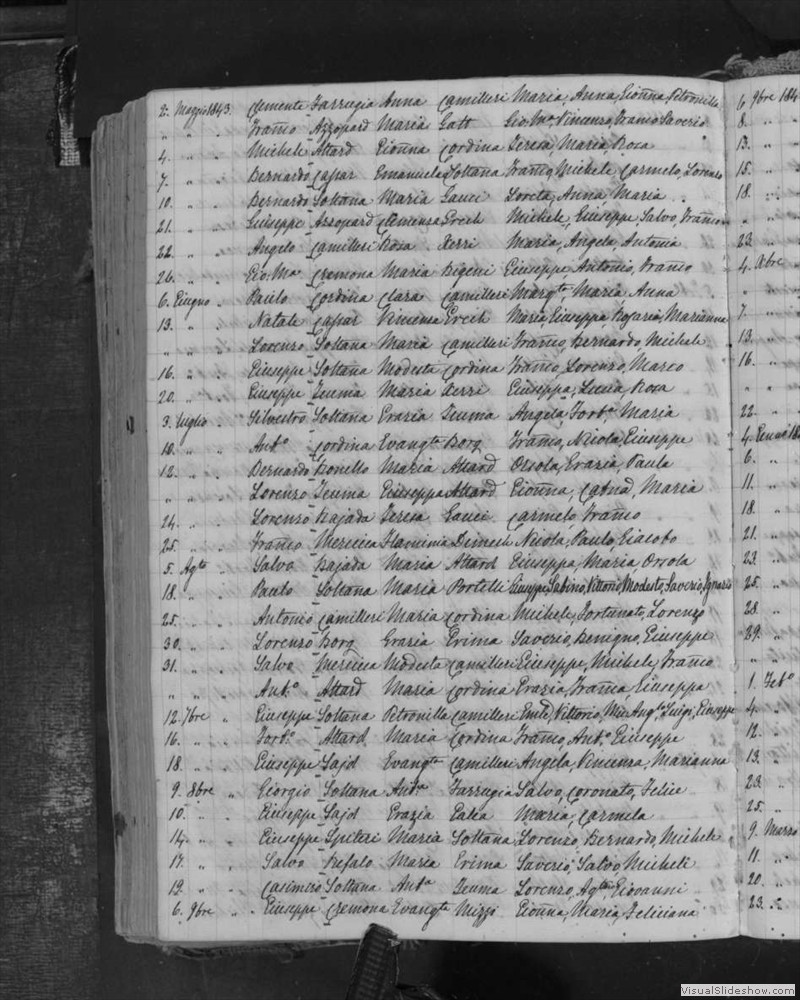 2. Maggio 1843. Clemente Farrugia Anna Camilleri Maria, Anna, Gioñna, Petronilla
" " . Franco Azzopard Maria Gatt Gio. Ma. Vincenzo, Franco Saverio
4. " . Michele Attard Gioñna Cordina Teresa, Maria, Rosa
7. " . Bernardo Caspar Emanuela Soltana Franco, Michele, Carmelo, Lorenzo
10. " . Bernardo Soltana Maria Gauci Loreta, Anna, Maria
21. " . Giuseppe Azzopard Clemenza Grech Michele, Giuseppe, Salvo, Franco
22. " . Angelo Camilleri Rosa Xerri Maria, Angela, Antonia
26. " . Gio. Ma Cremona Maria Bigeni Giuseppe, Antonio, Franco
6. Giugno . Paulo Cordina Clara Camilleri Margta, Maria, Anna
13. " . Natale Caspar Vincenza Grech Maria, Giuseppa, Rosaria, Marianna
" " . Lorenzo Soltana Maria Camilleri Franco, Bernardo, Michele
16. " . Giuseppe Soltana Modesta Cordina Franco, Lorenzo, Marco
20. " . Giuseppe Zeuma Maria Xerri Giuseppa, Lucia, Rosa
3. Luglio . Silvestro Soltana Grazia Zeuma Angela, Fortta, Maria
10. " . Anto Cordina Evangta Borg Franco, Nicola, Giuseppe
12. " . Bernardo Bonello Maria Attard Orsola, Grazia, Paula
" " . Lorenzo Zeuma Giuseppa Attard Gioñna, Catna, Maria
24. " . Lorenzo Bajada Teresa Gauci Carmelo, Franco
25. " . Franco Mercieca Flaminia Dimech Nicola, Paulo, Giacobo
5. Agto . Salvo Bajada Maria Attard Giuseppa, Maria, Orsola
18. " . Paulo Soltana Maria Portelli Giuseppe, Sabino, Vittorio, Modesto, Saverio, Ignazio
25. " . Antonio Camilleri Maria Cordina Michele, Fortunato, Lorenzo
30. " . Lorenzo Borg Grazia Grima Saverio, Benigno, Giuseppe
31. " . Salvo Mercieca Modesta Camilleri Giuseppe, Michele, Franco
" " . Anto Attard Maria Cordina Grazia, Franca, Giuseppa
12. 7bre " Giuseppe Soltana Petronilla Camilleri Vittorio, Luigi, Giuseppe
16. " " Attard Maria Cordina Franco, Anto, Giuseppe
18. " " Giuseppe Sajd Evangta Camilleri Angela, Vincenza, Marianna
9. 8bre " Giorgio Soltana Anta Farrugia Salvo, Coronato, Felice
10. " " Giuseppe Sajd Grazia Galea Maria, Carmela
14. " " Giuseppe Spiteri Maria Soltana Lorenzo, Bernardo, Michele
17. " " Salvo Refalo Maria Grima Saverio, Salvo, Michele
19. " " Casimiro Soltana Anta Zeuma Lorenzo, Agno, Giovanni
6. 9bre " . Giuseppe Cremona Evangta Mizzi Gioñna, Maria, Feliciana
6. 9bre 184
8. " "
13. " "
15. " "
18. " "
" "
23. "
4. Xbre
" "
7. "
13. "
16. "
" "
22. "
4. 18
6. "
11. "
18. "
21. "
23. "
25. "
28. "
29. "
" "
1. Febo
4. "
12. "
13. "
23. "
25. "
9. Marzo
11. "
20. "
23. "
VisualSlideshow.com